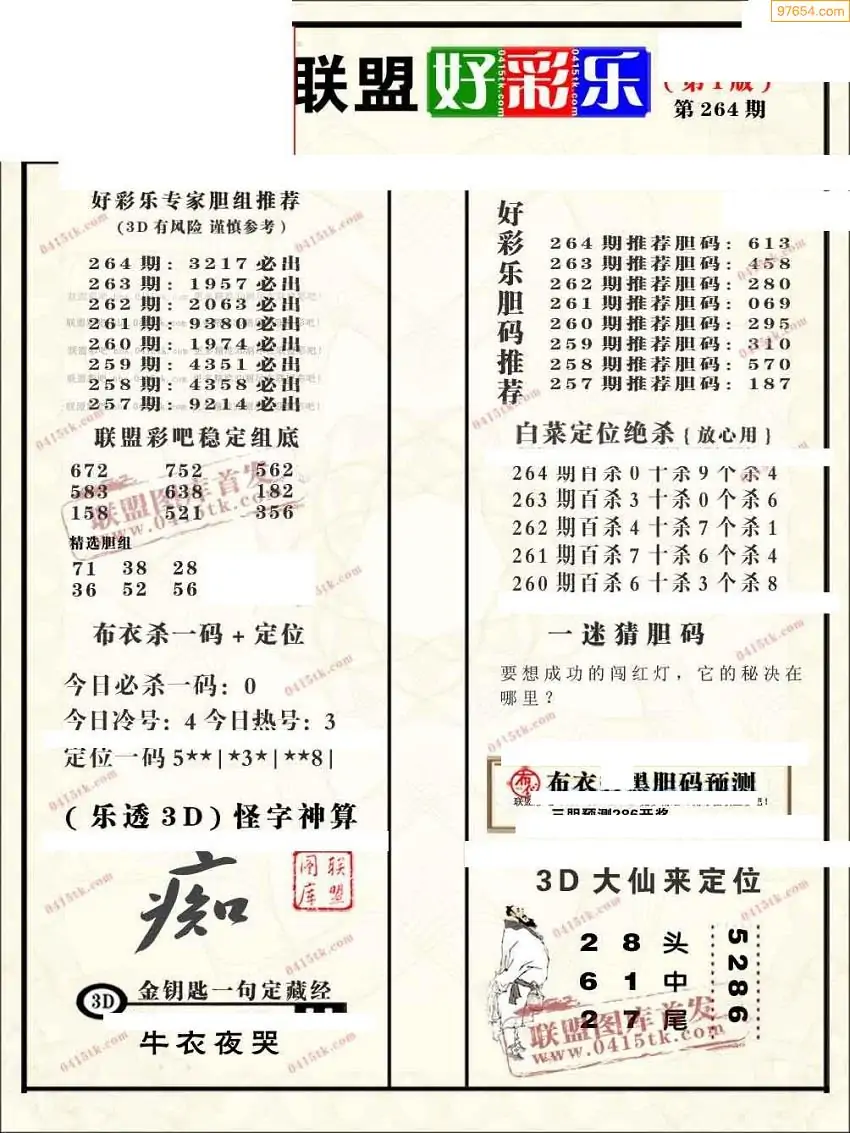 97654.com
联盟 好彩乐
第264期
好彩乐专家胆组推荐
(3D有风险 谨慎参考)
264期: 3217必出
263期: 1957必出
262期: 2063必出
261期: 9380必出
260期: 1974必出
259期: 4351必出
258期: 4358必出
257期: 9214必出
联盟彩吧稳定组底
672 752 562
583 638 182
158 521 356
精选胆组
71 38 28
36 52 56
布衣杀一码+定位
今日必杀一码: 0
今日冷号: 4 今日热号: 3
定位一码5**|*3*|**8|
(乐透3D)怪字神算
痴
联盟图库
3D 金钥匙一句定藏经
牛衣夜哭
好彩乐胆码推荐
264期推荐胆码: 613
263期推荐胆码: 458
262期推荐胆码: 280
261期推荐胆码: 069
260期推荐胆码: 295
259期推荐胆码: 310
258期推荐胆码: 570
257期推荐胆码: 187
白菜定位绝杀{放心用}
264期百杀0十杀9个杀4
263期百杀3十杀0个杀6
262期百杀4十杀7个杀1
261期百杀7十杀6个杀4
260期百杀6十杀3个杀8
一迷猜胆码
要想成功的闯红灯，它的秘决在
哪里？
布衣 胆码预测
3D大仙来定位
2 8 头
6 1 中
2 7 尾
5286
联盟图库首发
www.0415tk.com
联盟图库首发
www.0415tk.com
0415tk.com